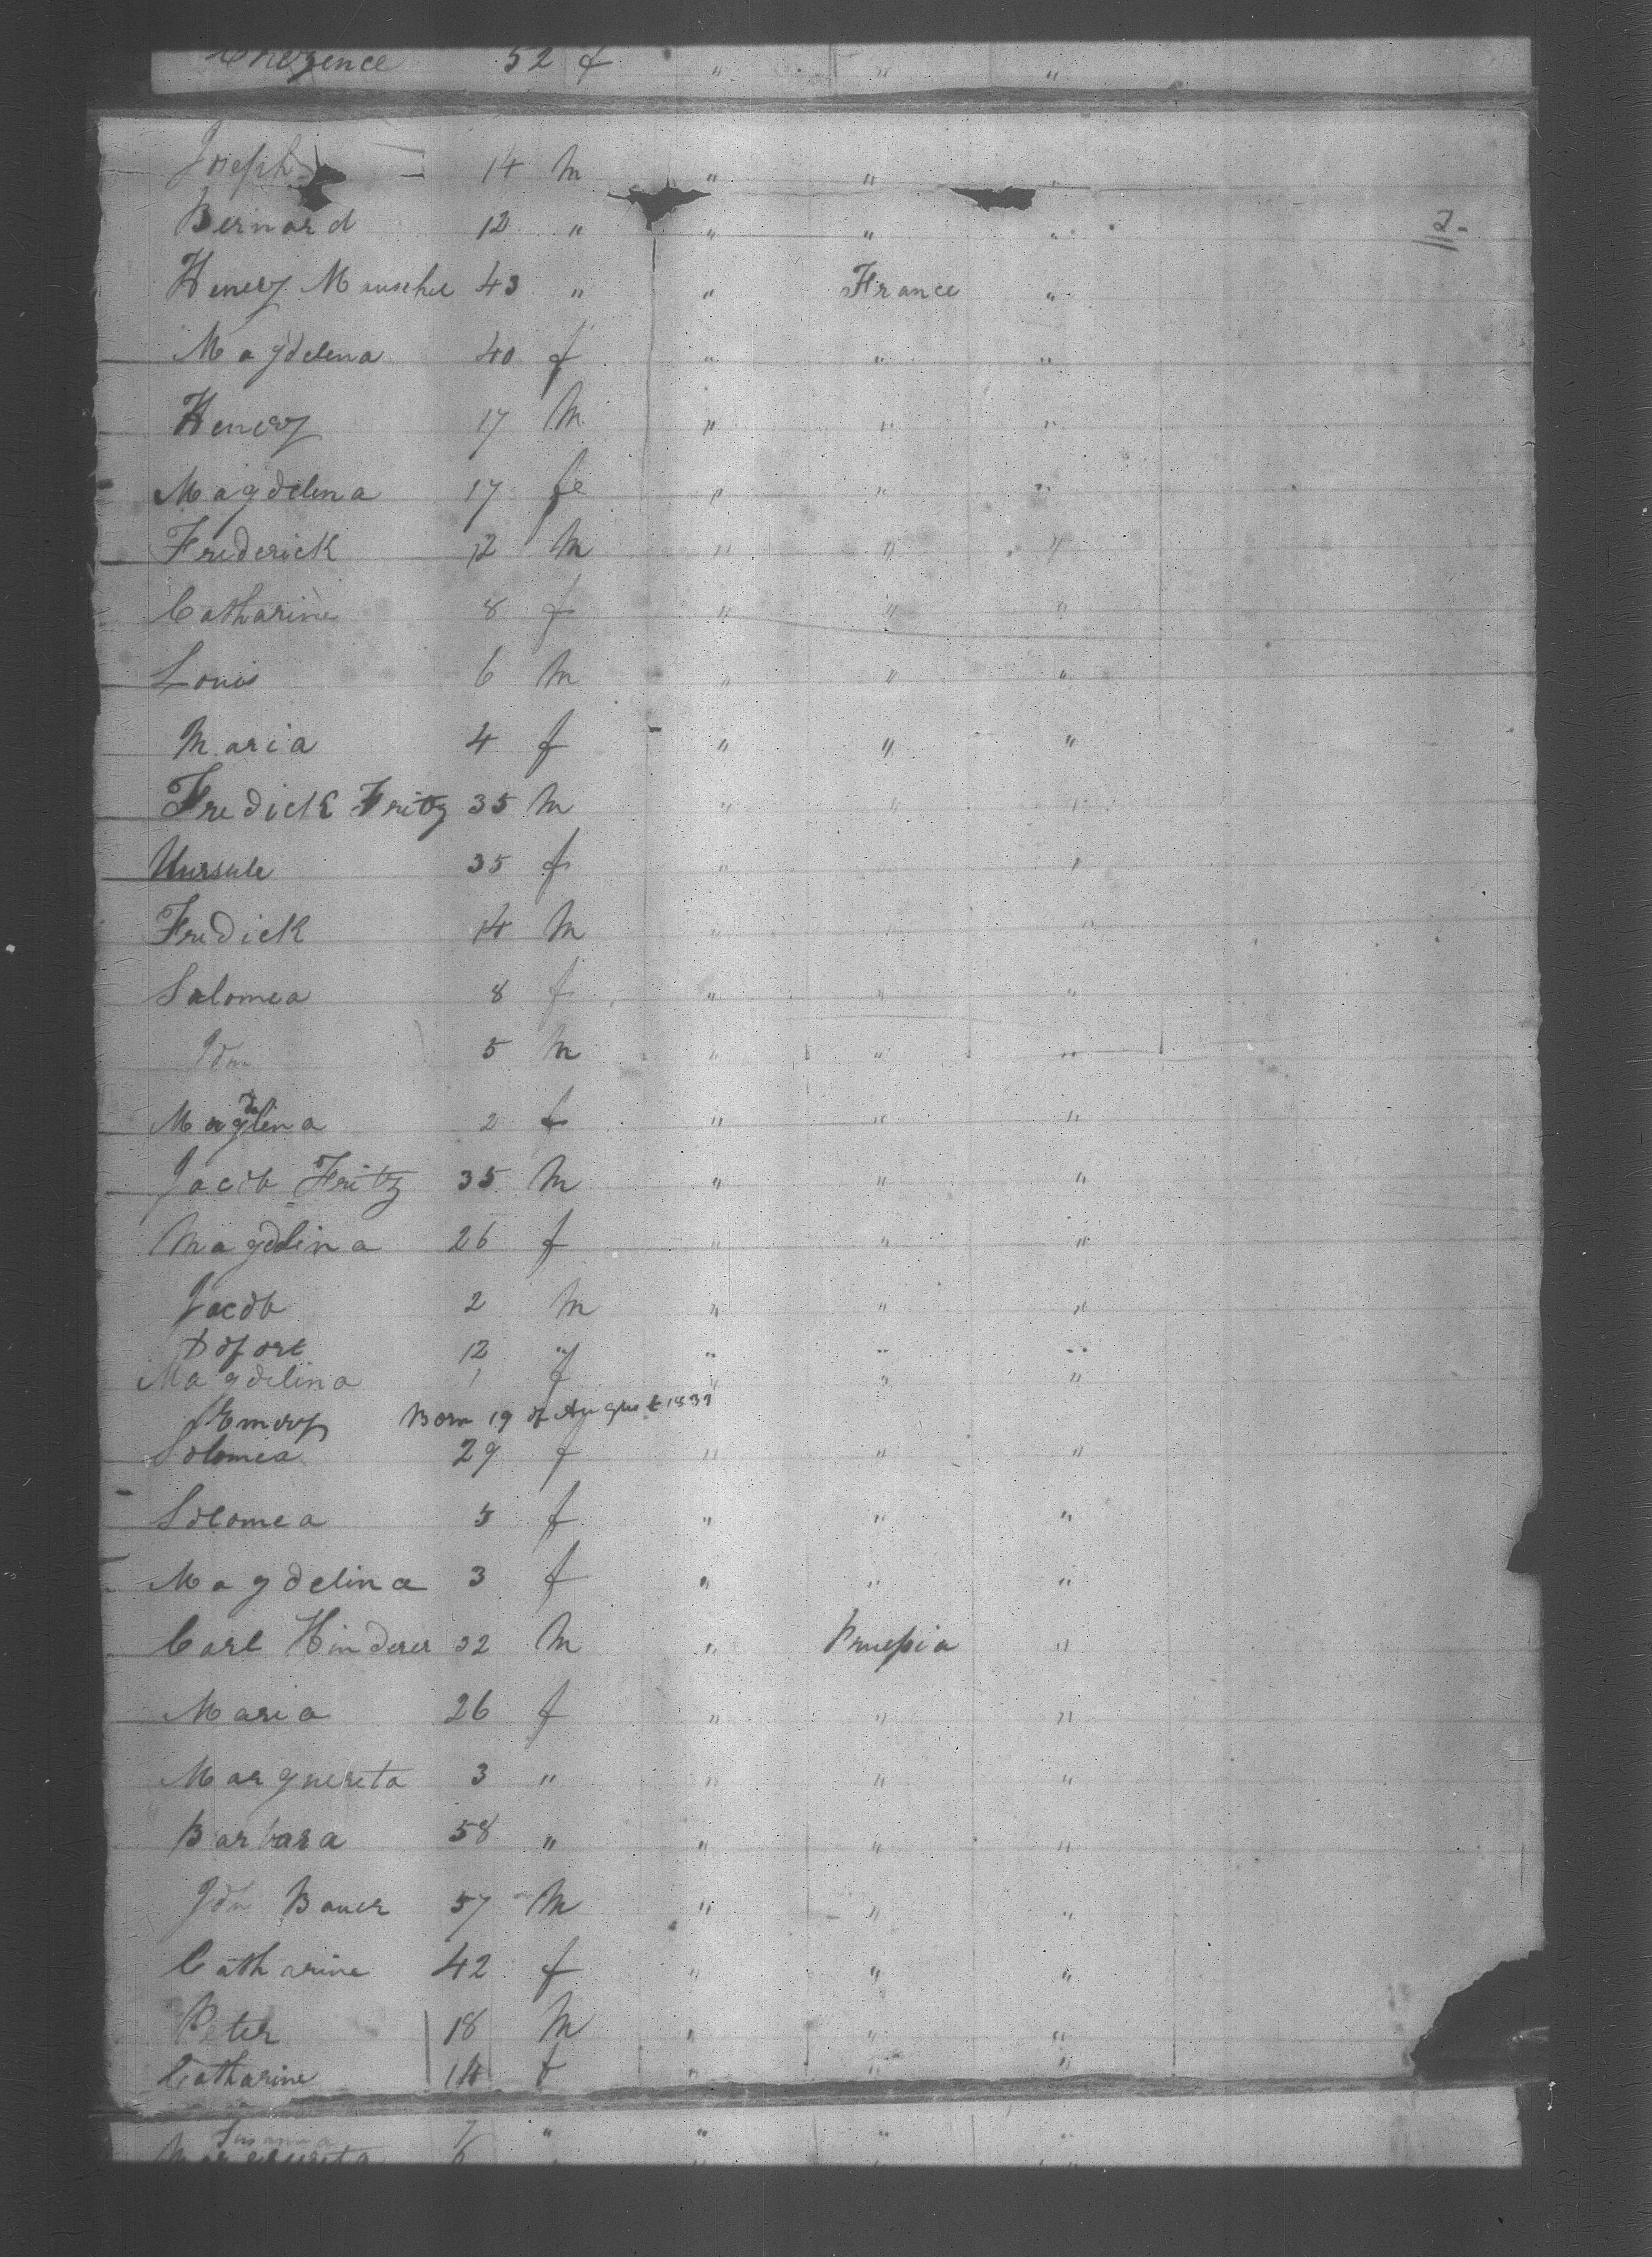 52 f " " "
Joseph 14 M " " "
Bernard 12 " " " " 2-
Henery Mauschel 43 " " France "
Magdelena 40 f " " "
Henery 17 M " " "
Magdelena 17 fe " " "
Frederick 12 M " " "
Catharine 8 f " " "
Louis 6 M " " "
Maria 4 f " " "
Fredick Fritz 35 M " " "
Uursule 35 f " "
Fredick 14 M " " "
Salomea 8 f " " "
Joh 5 M " " "
Magdlena 2 f " " "
Jacob Fritz 35 M " " "
Magdlina 26 f " " "
Jacob 2 M " " "
12 " " " "
Magdelina 1 f " " "
Emery Born 19 of August 1839
Solomea 29 f " " "
Solomea 5 f " " "
Magdelina 3 f " " "
Carl Hinderer 32 M " Prussia "
Maria 26 f " " "
Marguereta 3 " " " "
Barbara 58 " " " "
Joh Bauer 57 M " " "
Catharine 42 f " " "
Peter 18 M " " "
Catharine 14 f " " "
Susanna 7 " " " "
Marguereta 6 " " " "